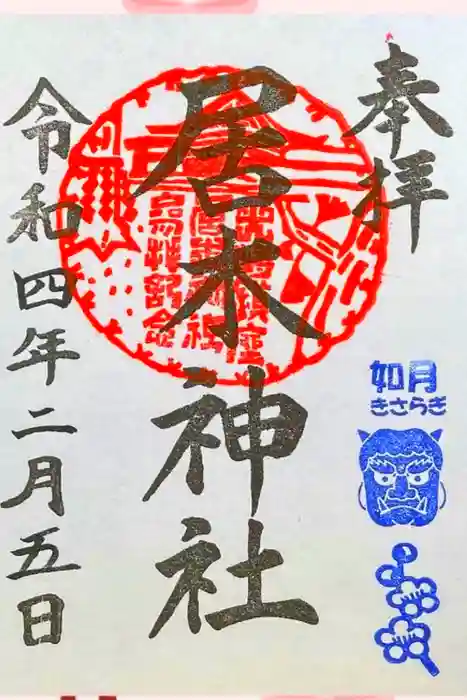 奉拝
居木神社
令和四年二月五日
如月
きさらぎ